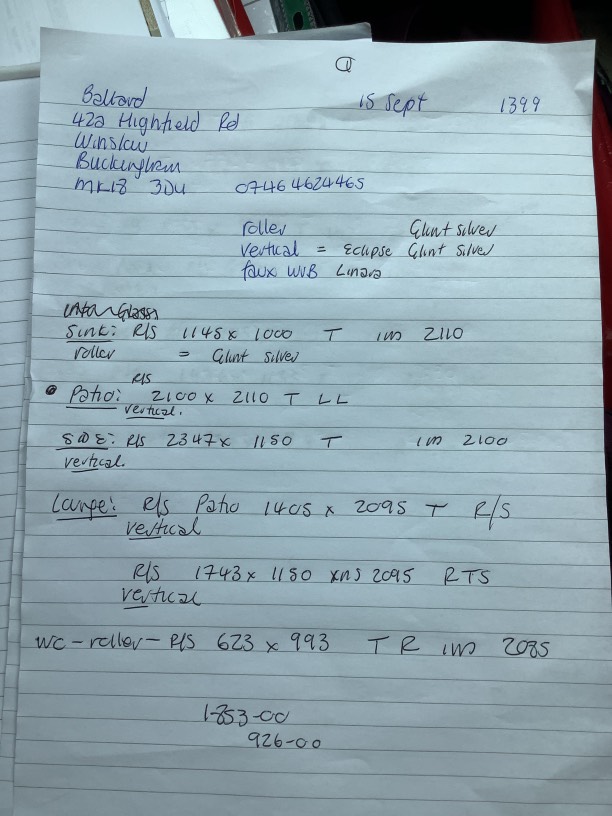 1
Ballard 15 Sept 1399
42a Highfield Rd
Winslow
Buckingham
MK18 3DU 07464624465
roller Glint Silver
vertical = Eclipse Glint Silver
faux WVB Linara
Sink: R/S 1145 x 1000 T in 2110
roller = Glint Silver
R/S
Patio: 2100 x 2110 T LL
vertical.
SIDE: R/S 2347 x 1150 T in 2100
vertical.
R/S Patio 1405 x 2095 T R/S
vertical
R/S 1743 x 1150 2095 RTS
vertical
WC - roller - R/S 623 x 993 T R in 2085
1-853-00
926-00